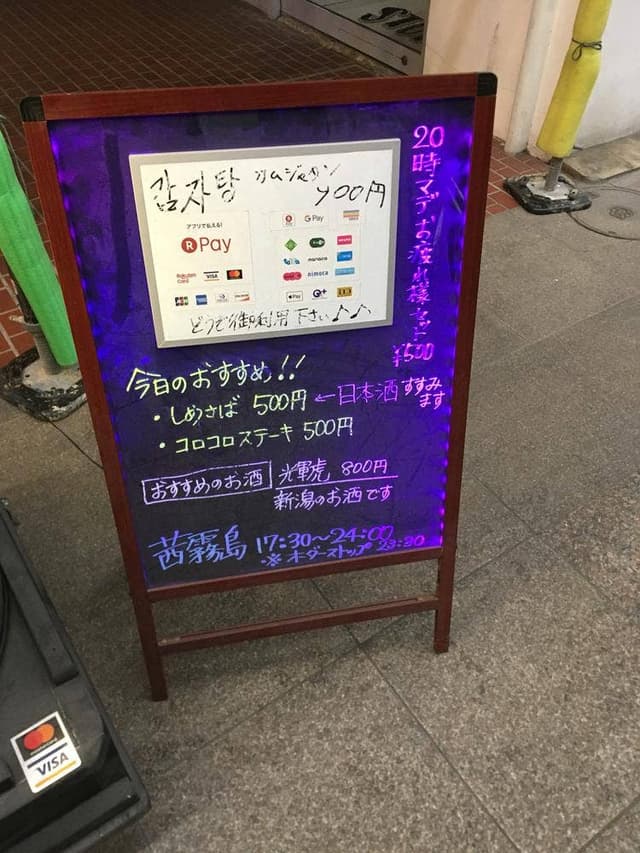 감자탕 カムジャタン
900円
アプリで伝える!
R Pay
G Pay
Rakuten Card VISA
JCB
nanaco
nimoca
Pay
どうぞ御利用下さい♪♪
20時マデお疲れ様セット
¥500
今日のおすすめ!!
・しめさば 500円 ←日本酒すすみます
・コロコロステーキ 500円
おすすめのお酒 光輝虎 800円
新潟のお酒です
茜霧島 17:30~24:00
※オーダーストップ 23:30
VISA